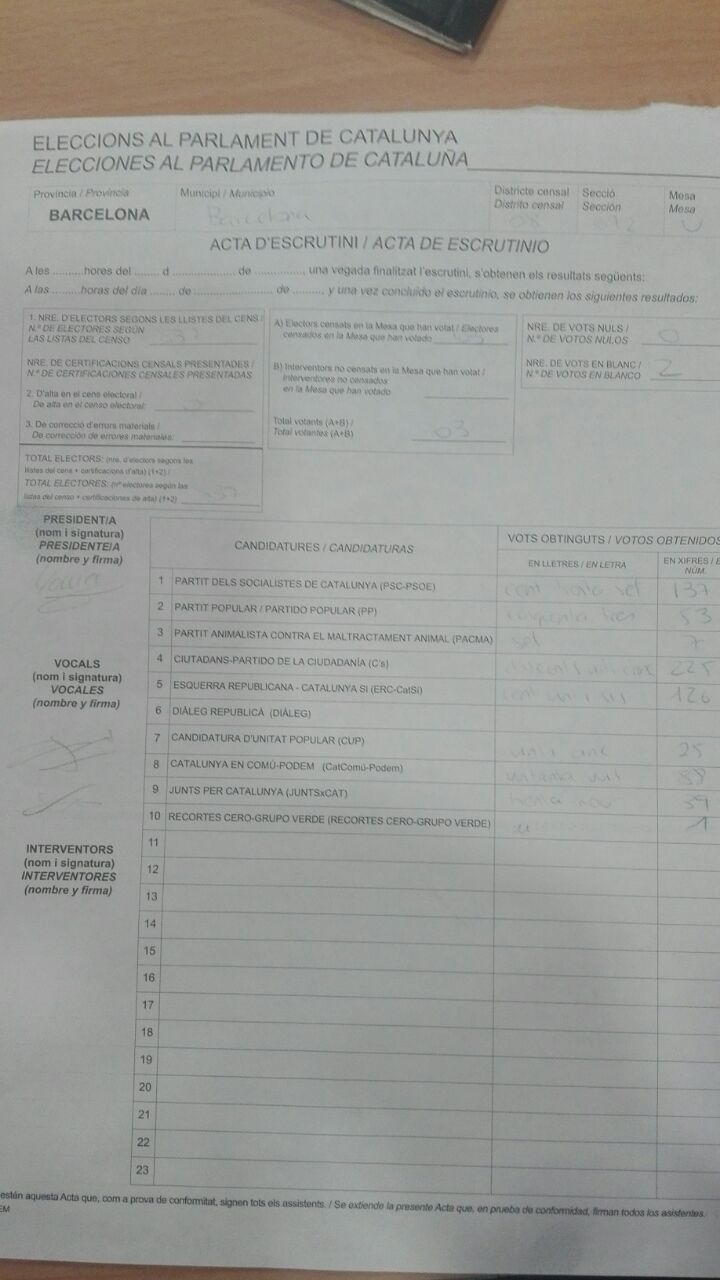 ELECCIONS AL PARLAMENT DE CATALUNYA
ELECCIONES AL PARLAMENTO DE CATALUÑA
Província / Provincia
BARCELONA
Municipi / Municipio
Barcelona
Districte censal
Distrito censal
Secció
Sección
Mesa
Mesa
U
ACTA D'ESCRUTINI / ACTA DE ESCRUTINIO
A les ..........hores del ........ d ..................... de ................, una vegada finalitzat l'escrutini, s'obtenen els resultats següents:
A las .........horas del día ........ de .......................... de .........., y una vez concluido el escrutinio, se obtienen los siguientes resultados:
1. NRE. D'ELECTORS SEGONS LES LLISTES DEL CENS /
N.º DE ELECTORES SEGÚN
LAS LISTAS DEL CENSO
NRE. DE CERTIFICACIONS CENSALS PRESENTADES /
N.º DE CERTIFICACIONES CENSALES PRESENTADAS
2. D'alta en el cens electoral /
De alta en el censo electoral:
3. De correcció d'errors materials /
De corrección de errores materiales:
TOTAL ELECTORS: (nre. d'electors segons les
llistes del cens + certificacions d'alta) (1+2) /
TOTAL ELECTORES: (nº electores según las
listas del censo + certificaciones de alta) (1+2)
A) Electors censats en la Mesa que han votat / Electores
censados en la Mesa que han votado
B) Interventors no censats en la Mesa que han votat /
Interventores no censados
en la Mesa que han votado
Total votants (A+B) /
Total votantes (A+B)
NRE. DE VOTS NULS /
N.º DE VOTOS NULOS 0
NRE. DE VOTS EN BLANC /
N.º DE VOTOS EN BLANCO 2
PRESIDENT/A
(nom i signatura)
PRESIDENTE/A
(nombre y firma)
VOCALS
(nom i signatura)
VOCALES
(nombre y firma)
INTERVENTORS
(nom i signatura)
INTERVENTORES
(nombre y firma)
CANDIDATURES / CANDIDATURAS
VOTS OBTINGUTS / VOTOS OBTENIDOS
EN LLETRES / EN LETRA
EN XIFRES / E
NÚM.
1 PARTIT DELS SOCIALISTES DE CATALUNYA (PSC-PSOE) cent trenta set 137
2 PARTIT POPULAR / PARTIDO POPULAR (PP) cinquanta tres 53
3 PARTIT ANIMALISTA CONTRA EL MALTRACTAMENT ANIMAL (PACMA) set 7
4 CIUTADANS-PARTIDO DE LA CIUDADANÍA (C's) 225
5 ESQUERRA REPUBLICANA - CATALUNYA SI (ERC-CatSí) 126
6 DIÀLEG REPUBLICÀ (DIÀLEG)
7 CANDIDATURA D'UNITAT POPULAR (CUP) 25
8 CATALUNYA EN COMÚ-PODEM (CatComú-Podem) 88
9 JUNTS PER CATALUNYA (JUNTSxCAT) trenta nou 39
10 RECORTES CERO-GRUPO VERDE (RECORTES CERO-GRUPO VERDE) u 1
11
12
13
14
15
16
17
18
19
20
21
22
23
estén aquesta Acta que, com a prova de conformitat, signen tots els assistents. / Se extiende la presente Acta que, en prueba de conformidad, firman todos los asistentes.
EM